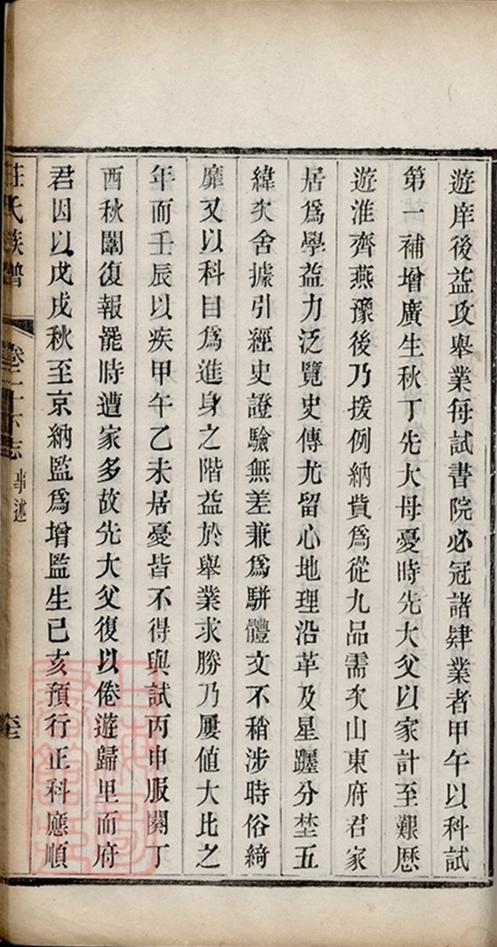 遊庠後益攻舉業每試書院必冠諸肄業者甲午以科試
第一補增廣生秋丁先大母憂時先大父以家計至艱歷
遊淮齊燕豫後乃援例納貲爲從九品需次山東府君家
居爲學益力泛覽史傳尤留心地理沿革及星躔分埜五
緯次舍據引經史證驗無差兼爲駢體文不稍涉時俗綺
靡又以科目爲進身之階益於舉業求勝乃屢値大比之
年而壬辰以疾甲午乙未居憂皆不得與試丙申服闋丁
酉秋闈復報罷時遭家多故先大父復以倦遊歸里而府
君因以戊戌秋至京納監爲增監生己亥預行正科應順
莊氏族譜
卷二十下志
事述